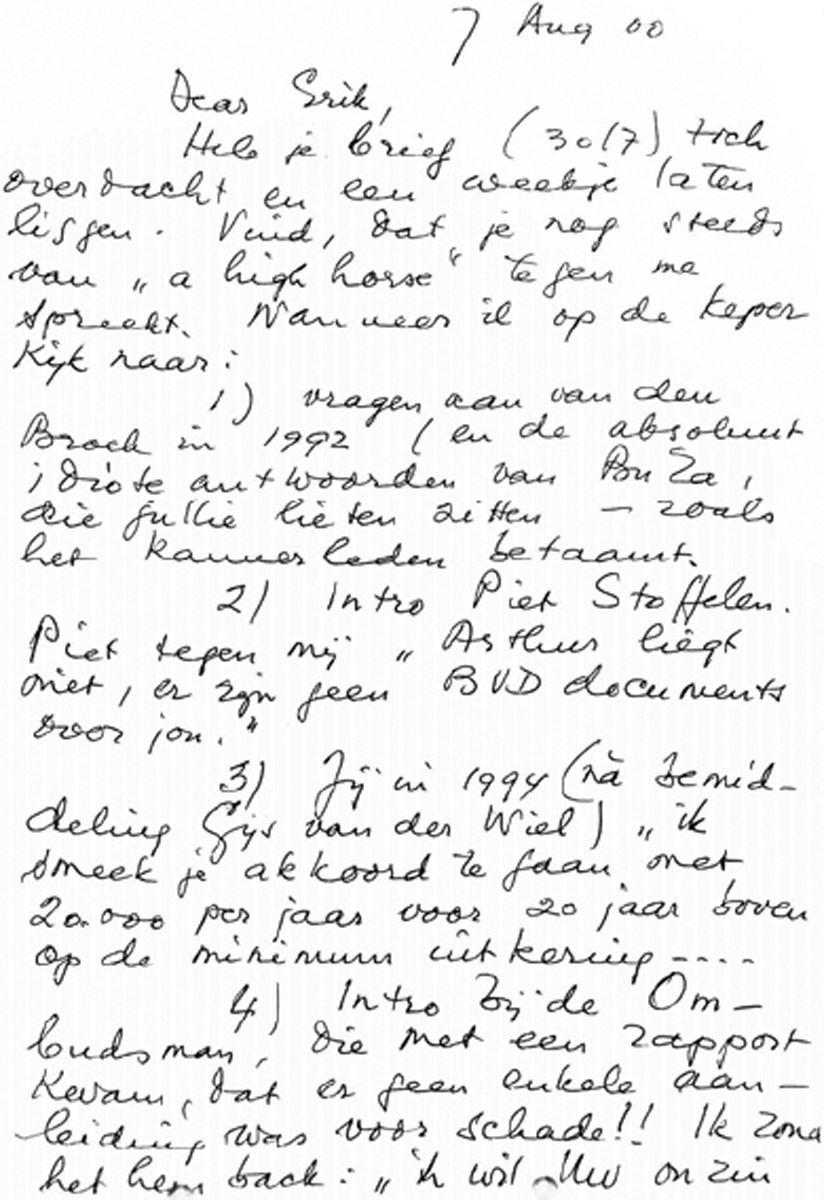 7 Aug 00
Dear Erik,
Heb je brief (30/7) toch
overdacht en een weekje laten
liggen. Vind, dat je nog steeds
van „a high horse" tegen me
spreekt. Wanneer ik op de keper
kijk naar:
1) vragen aan van den
Broek in 1992 (en de absoluut
idiote antwoorden van BuZa,
die jullie lieten zitten – zoals
het kamerleden betaamt.
2) Intro Piet Stoffelen.
Piet tegen mij „Arthur liegt
niet, er zijn geen BVD documents
over jou."
3) Jij in 1994 (ná bemid-
deling Gijs van der Wiel) „ik
smeek je akkoord te gaan met
20.000 per jaar voor 20 jaar boven
op de minimum uitkering ----
4) Intro bij de Om-
budsman, die met een rapport
kwam, dat er geen enkele aan-
leiding was voor schade!! Ik zond
het hem back: „ik wil Uw onzin